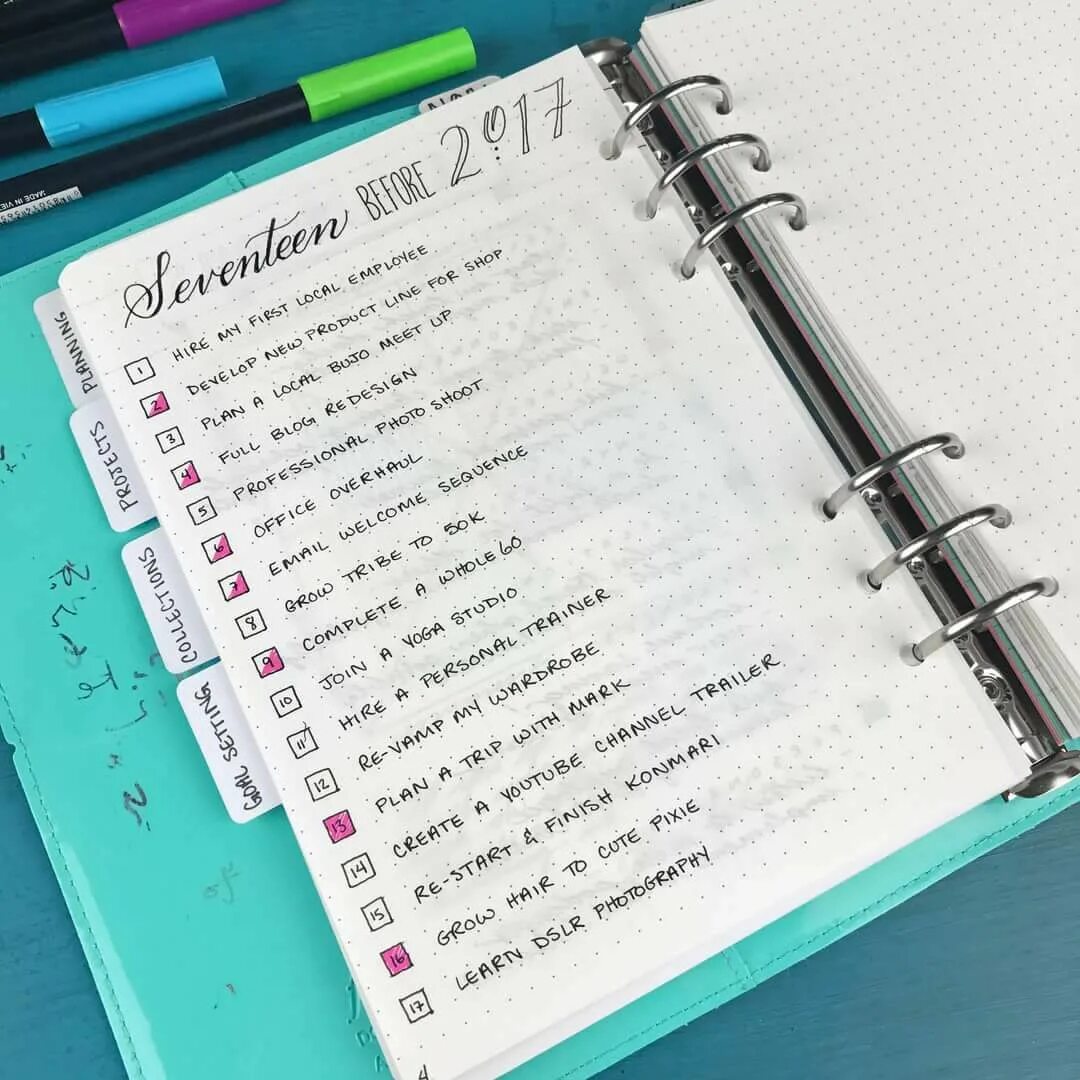 Seventeen BEFORE 2017
1 HIRE MY FIRST LOCAL EMPLOYEE
2 DEVELOP NEW PRODUCT LINE FOR SHOP
3 PLAN A LOCAL BUJO MEET UP
4 FULL BLOG REDESIGN
5 PROFESSIONAL PHOTO SHOOT
6 OFFICE OVERHAUL
7 EMAIL WELCOME SEQUENCE
8 GROW TRIBE TO 50K
9 COMPLETE A WHOLE60
10 JOIN A YOGA STUDIO
11 HIRE A PERSONAL TRAINER
12 RE-VAMP MY WARDROBE
13 PLAN A TRIP WITH MARK
14 CREATE A YOUTUBE CHANNEL TRAILER
15 RE-START & FINISH KONMARI
16 GROW HAIR TO CUTE PIXIE
17 LEARN DSLR PHOTOGRAPHY
PLANNING
PROJECTS
COLLECTIONS
GOAL SETTING
MADE IN